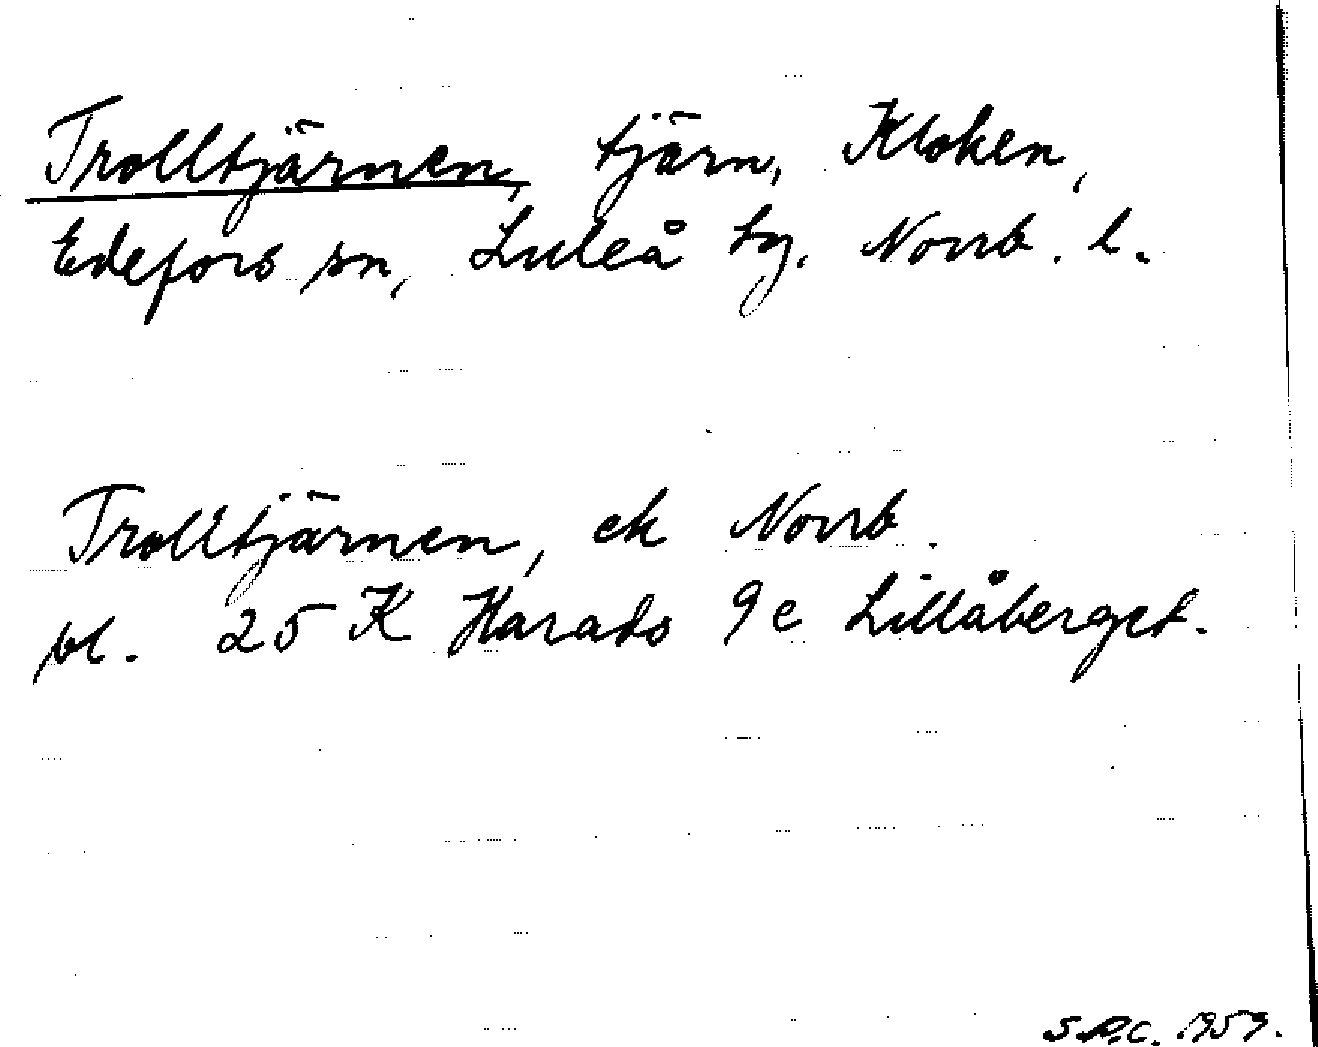 Trolltjärnen, tjärn, Kloken,
Edefors sn, Luleå tg. Norrb. l.
Trolltjärnen, ek Norrb.
bl. 25 K Harads 9 c Lillåberget.
1959.